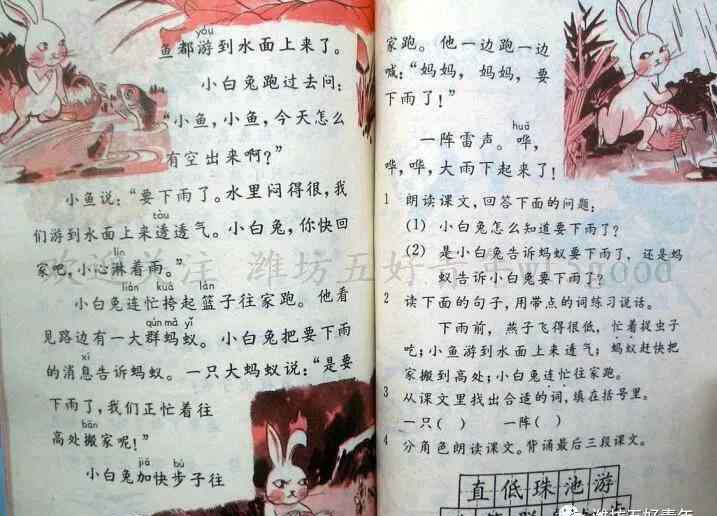 yóu
鱼都游到水面上来了。
小白兔跑过去问：
“小鱼，小鱼，今天怎么
有空出来啊？”
小鱼说：“要下雨了。水里闷得很，我
tòu
们游到水面上来透透气。小白兔，你快回
lín
家吧，小心淋着雨。”
lián kuà lán
小白兔连忙挎起篮子往家跑。他看
qún mǎ yǐ
见路边有一大群蚂蚁。小白兔把要下雨
xi
的消息告诉蚂蚁。一只大蚂蚁说：“是要
下雨了，我们正忙着往
bān
高处搬家呢！”
jiā bù
小白兔加快步子往
家跑。他一边跑一边
喊：“妈妈，妈妈，要
下雨了！”
huā
一阵雷声。哗，
哗，哗，大雨下起来了！
1 朗读课文，回答下面的问题：
(1) 小白兔怎么知道要下雨了？
(2) 是小白兔告诉蚂蚁要下雨了，还是蚂
蚁告诉小白兔要下雨了？
2 读下面的句子，用带点的词练习说话。
下雨前，燕子飞得很低，忙着捉虫子
吃；小鱼游到水面上来透气；蚂蚁赶快把
家搬到高处；小白兔连忙往家跑。
3 从课文里找出合适的词，填在括号里。
一只( ) 一阵( )
4 分角色朗读课文。背诵最后三段课文。
直低珠池游
欢迎关注 潍坊五好青年
潍坊五好青年